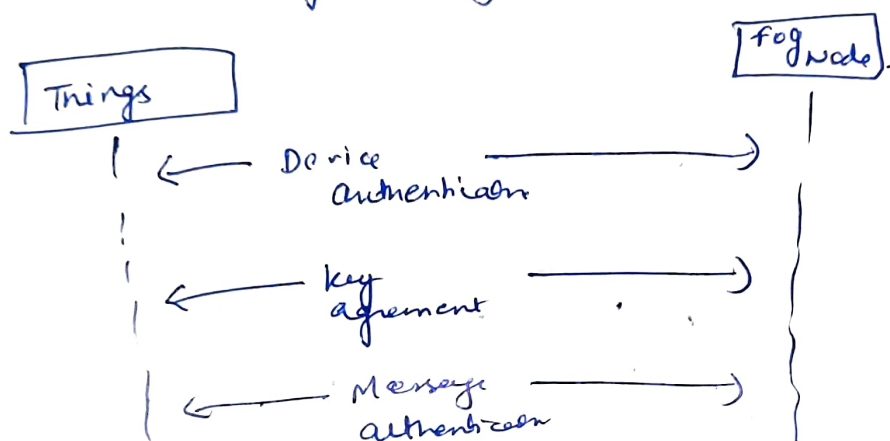 fog Node
Things
Device
authentication
key
agrement
Message
authentication